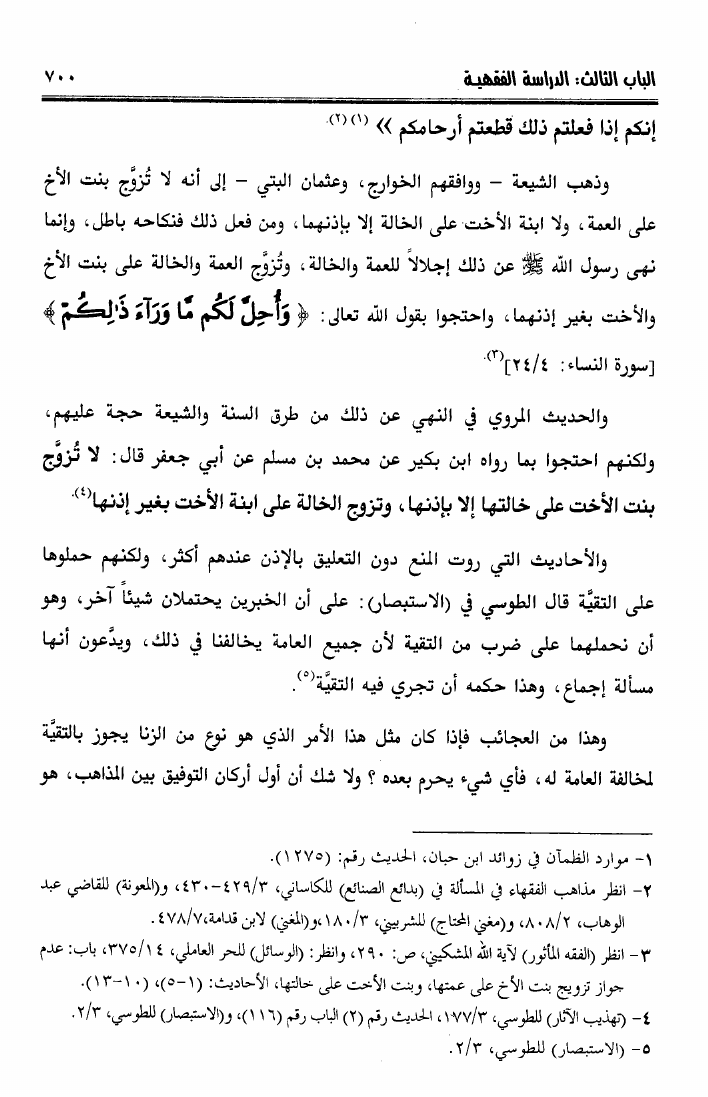 الباب الثالث: الدراسة الفقهية ٧٠٠
إنكم إذا فعلتم ذلك قطعتم أرحامكم »(١)(٢).
وذهب الشيعة – ووافقهم الخوارج، وعثمان البتي – إلى أنه لا تُزوَّج بنت الأخ
على العمة، ولا ابنة الأخت على الخالة إلا بإذنهما، ومن فعل ذلك فنكاحه باطل، وإنما
نهى رسول الله ﷺ عن ذلك إجلالاً للعمة والخالة، وتُزوَّج العمة والخالة على بنت الأخ
والأخت بغير إذنهما، واحتجوا بقول الله تعالى: ﴿ وَأُحِلَّ لَكُم مَّا وَرَآءَ ذَٰلِكُمْ ﴾
[سورة النساء: ٢٤/٤](٣).
والحديث المروي في النهي عن ذلك من طرق السنة والشيعة حجة عليهم،
ولكنهم احتجوا بما رواه ابن بكير عن محمد بن مسلم عن أبي جعفر قال: لا تُزوَّج
بنت الأخت على خالتها إلا بإذنها، وتزوج الخالة على ابنة الأخت بغير إذنها(٤).
والأحاديث التي روت المنع دون التعليق بالإذن عندهم أكثر، ولكنهم حملوها
على التقيَّة قال الطوسي في (الاستبصار): على أن الخبرين يحتملان شيئاً آخر، وهو
أن نحملهما على ضرب من التقية لأن جميع العامة يخالفنا في ذلك، ويدَّعون أنها
مسألة إجماع، وهذا حكمه أن تجري فيه التقيَّة(٥).
وهذا من العجائب فإذا كان مثل هذا الأمر الذي هو نوع من الزنا يجوز بالتقيَّة
لمخالفة العامة له، فأي شيء يحرم بعده ؟ ولا شك أن أول أركان التوفيق بين المذاهب، هو
١- موارد الظمآن في زوائد ابن حبان، الحديث رقم: (١٢٧٥).
٢- انظر مذاهب الفقهاء في المسألة في (بدائع الصنائع) للكاساني، ٤٢٩/٣-٤٣٠، و(المعونة) للقاضي عبد
الوهاب، ٨٠٨/٢، و(مغني المحتاج) للشربيني، ١٨٠/٣،و(المغني) لابن قدامة،٤٧٨/٧.
٣- انظر (الفقه المأثور) لآية الله المشكيني، ص: ٢٩٠، وانظر: (الوسائل) للحر العاملي، ٣٧٥/١٤، باب: عدم
جواز تزويج بنت الأخ على عمتها، وبنت الأخت على خالتها، الأحاديث: (١-٥)، (١٠-١٣).
٤- (تهذيب الآثار) للطوسي، ١٧٧/٣، الحديث رقم (٢) الباب رقم (١١٦)، و(الاستبصار) للطوسي، ٢/٣.
٥- (الاستبصار) للطوسي، ٢/٣.